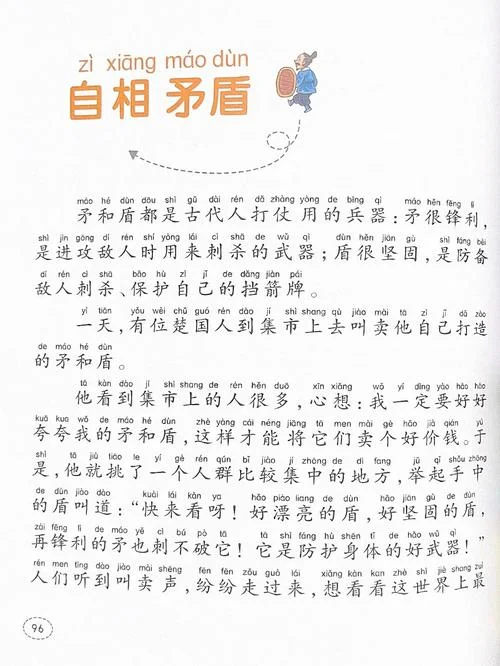 zì xiāng máo dùn
自相 矛盾
máo hé dùn dōu shì gǔ dài rén dǎ zhàng yòng de bīng qì máo hěn fēng lì
矛和盾都是古代人打仗用的兵器：矛很锋利，
shì jìn gōng dí rén shí yòng lái cì shā de wǔ qì dùn hěn jiān gù shì fáng bèi
是进攻敌人时用来刺杀的武器；盾很坚固，是防备
dí rén cì shā bǎo hù zì jǐ de dǎng jiàn pái
敌人刺杀、保护自己的挡箭牌。
yì tiān yǒu wèi chǔ guó rén dào jí shì shang qù jiào mài tā zì jǐ dǎ zào
一天，有位楚国人到集市上去叫卖他自己打造
de máo hé dùn
的矛和盾。
tā kàn dào jí shì shang de rén hěn duō xīn xiǎng wǒ yí dìng yào hǎo hǎo
他看到集市上的人很多，心想：我一定要好好
kuā kua wǒ de máo hé dùn zhè yàng cái néng jiāng tā men mài gè hǎo jià qián yú
夸夸我的矛和盾，这样才能将它们卖个好价钱。于
shì tā jiù tiāo le yí gè rén qún bǐ jiào jí zhōng de dì fang jǔ qǐ shǒu zhōng
是，他就挑了一个人群比较集中的地方，举起手中
de dùn jiào dào kuài lái kàn ya hǎo piào liang de dùn hǎo jiān gù de dùn
的盾叫道：“快来看呀！好漂亮的盾，好坚固的盾，
zài fēng lì de máo yě cì bú pò tā tā shì fáng hù shēn tǐ de hǎo wǔ qì
再锋利的矛也刺不破它！它是防护身体的好武器！”
rén men tīng dào jiào mài shēng fēn fēn zǒu guò lái xiǎng kàn kan zhè shì jiè shang zuì
人们听到叫卖声，纷纷走过来，想看看这世界上最
96